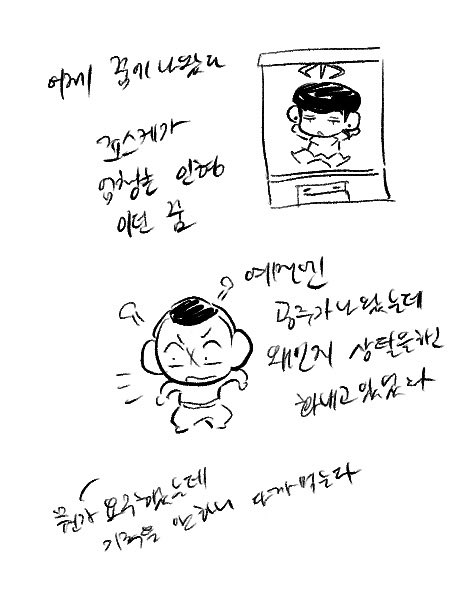 어제 꿈에 나왔다
죠스케가
엄청난 인형
이던 꿈
예전엔
공주가 나왔는데
왜인지 상탈을 한
화내고 있었다
뭔가 요구했는데
기억은 안 나니 다까먹는다